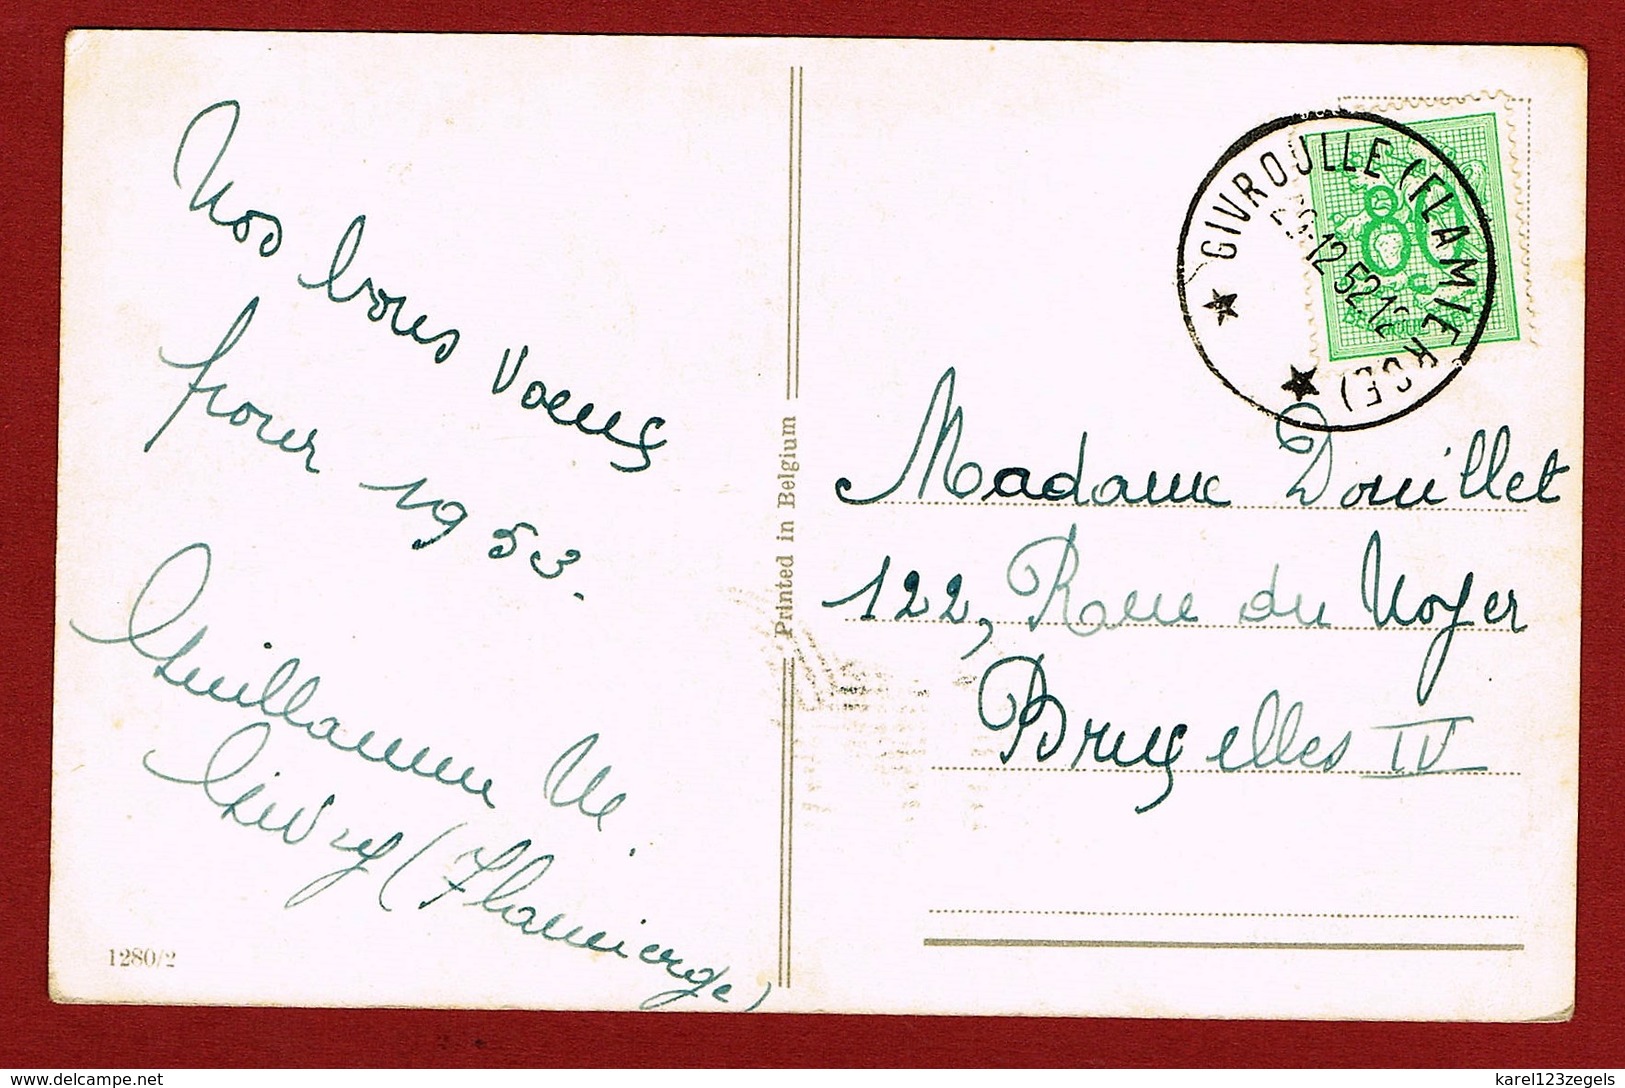 Nos bons vœux
pour 1953.
Guillaume M.
Givry (Flamierge)
1280/2
Printed in Belgium
GIVROULLE (FLAMIERGE)
-12 52 12
80
Madame Douillet
122, Rue du Noyer
Bruxelles IV
delcampe.net
karel123zegels